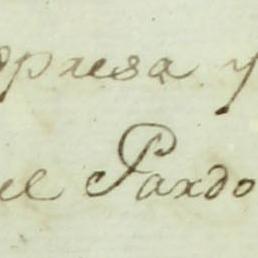 presa y
el Pardo